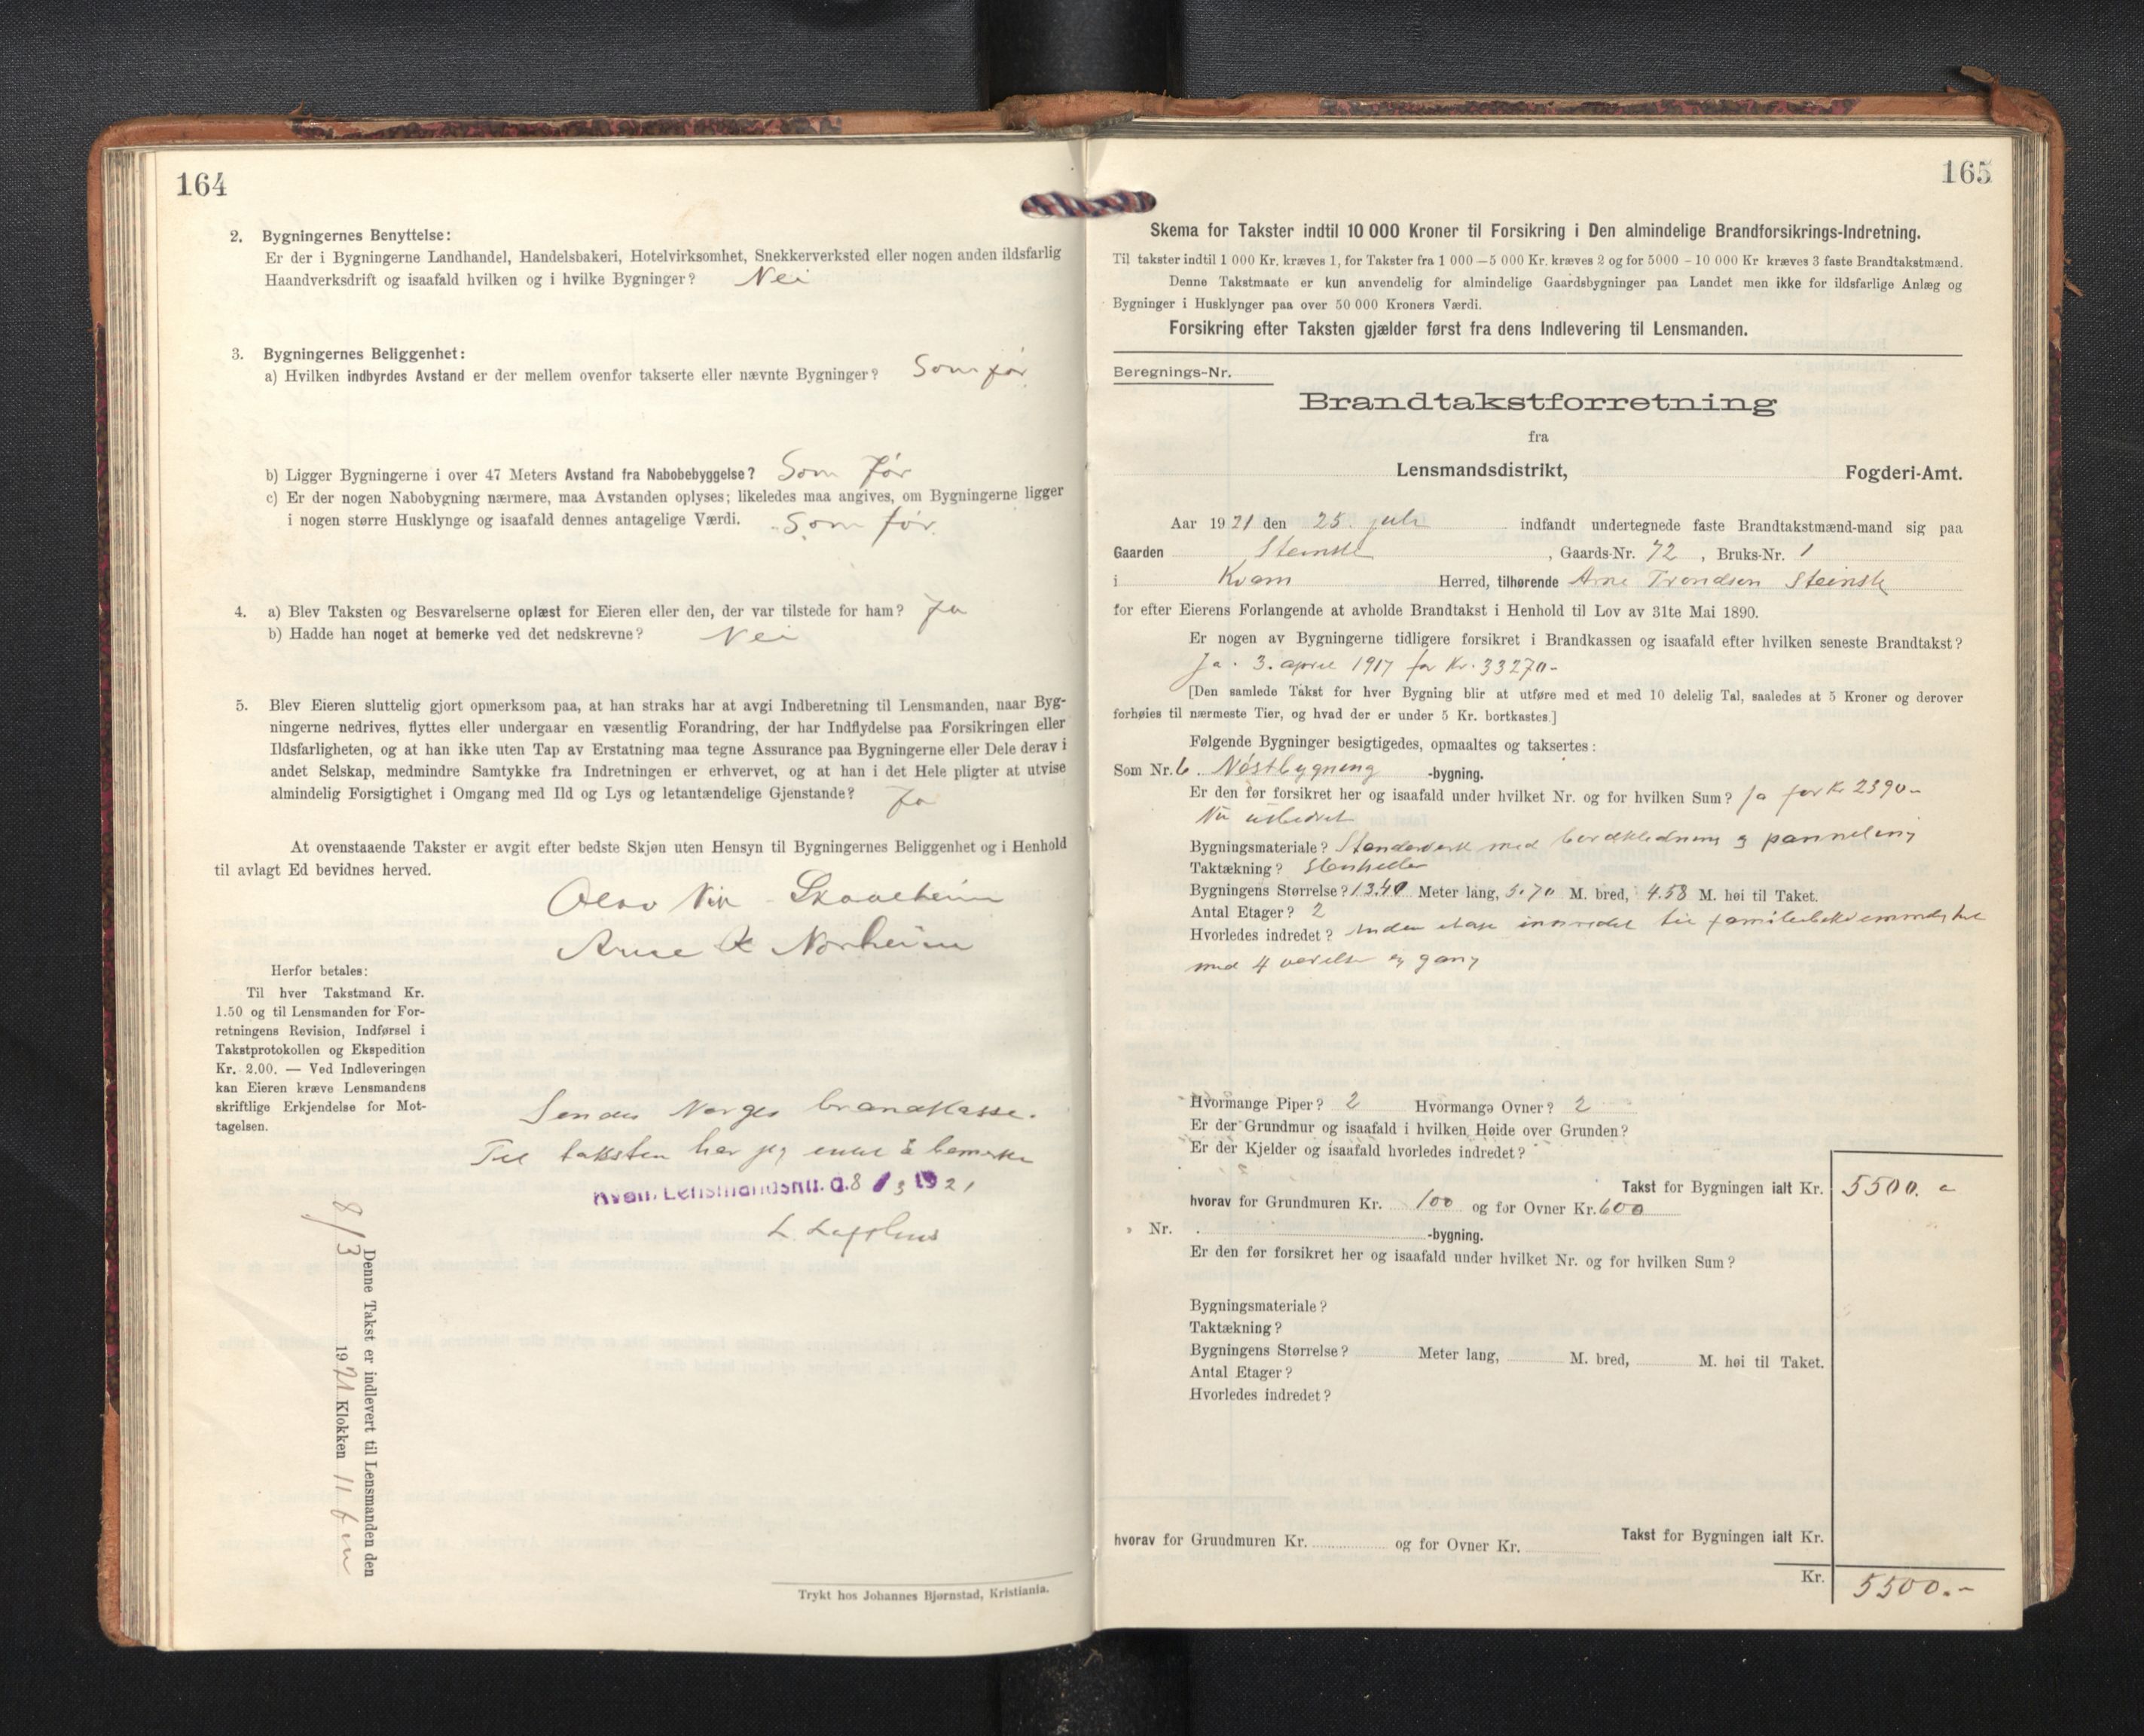 164
2. Bygningernes Benyttelse:
Er der i Bygningerne Landhandel, Handelsbakeri, Hotelvirksomhet, Snekkerverksted eller nogen anden ildsfarlig
Haandverksdrift og isaafald hvilken og i hvilke Bygninger? Nei
3. Bygningernes Beliggenhet:
a) Hvilken indbyrdes Avstand er der mellem ovenfor takserte eller nævnte Bygninger? Som før
b) Ligger Bygningerne i over 47 Meters Avstand fra Nabobebyggelse? Som før
c) Er der nogen Nabobygning nærmere, maa Avstanden oplyses; likeledes maa angives, om Bygningerne ligger
i nogen større Husklynge og isaafald dennes antagelige Værdi. Som før.
4. a) Blev Taksten og Besvarelserne oplæst for Eieren eller den, der var tilstede for ham? Ja
b) Hadde han noget at bemerke ved det nedskrevne? Nei
5. Blev Eieren sluttelig gjort opmerksom paa, at han straks har at avgi Indberetning til Lensmanden, naar Byg-
ningerne nedrives, flyttes eller undergaar en væsentlig Forandring, der har Indflydelse paa Forsikringen eller
Ildsfarligheten, og at han ikke uten Tap av Erstatning maa tegne Assurance paa Bygningerne eller Dele derav i
andet Selskap, medmindre Samtykke fra Indretningen er erhvervet, og at han i det Hele pligter at utvise
almindelig Forsigtighet i Omgang med Ild og Lys og letantændelige Gjenstande? Ja
At ovenstaaende Takster er avgit efter bedste Skjøn uten Hensyn til Bygningernes Beliggenhet og i Henhold
til avlagt Ed bevidnes herved.
Olav Vik Skaalheim
Arne Norheim
Herfor betales:
Til hver Takstmand Kr.
1.50 og til Lensmanden for For-
retningens Revision, Indførsel i
Takstprotokollen og Ekspedition
Kr. 2.00. — Ved Indleveringen
kan Eieren kræve Lensmandens
skriftlige Erkjendelse for Mot-
tagelsen.
Sendes Norges brandkasse.
Til taksten har jeg intet å bemerke
Kvam Lensmandsktr. d. 8/3 1921
Denne Takst er indlevert til Lensmanden den
8/3 1921 Klokken 11 fm
Trykt hos Johannes Bjørnstad, Kristiania.
165
Skema for Takster indtil 10 000 Kroner til Forsikring i Den almindelige Brandforsikrings-Indretning.
Til takster indtil 1 000 Kr. kræves 1, for Takster fra 1 000 — 5 000 Kr. kræves 2 og for 5000 - 10 000 Kr kræves 3 faste Brandtakstmænd.
Denne Takstmaate er kun anvendelig for almindelige Gaardsbygninger paa Landet men ikke for ildsfarlige Anlæg og
Bygninger i Husklynger paa over 50 000 Kroners Værdi.
Forsikring efter Taksten gjælder først fra dens Indlevering til Lensmanden.
Beregnings-Nr.
Brandtakstforretning
fra
Lensmandsdistrikt, Fogderi-Amt.
Aar 1921 den 25. juli indfandt undertegnede faste Brandtakstmænd-mand sig paa
Gaarden Steinste, Gaards-Nr. 72, Bruks-Nr. 1
i Kvam Herred, tilhørende Arne Trondsen
for efter Eierens Forlangende at avholde Brandtakst i Henhold til Lov av 31te Mai 1890.
Er nogen av Bygningerne tidligere forsikret i Brandkassen og isaafald efter hvilken seneste Brandtakst?
Ja. 3. april 1917 for Kr. 33270-
[Den samlede Takst for hver Bygning blir at utføre med et med 10 delelig Tal, saaledes at 5 Kroner og derover
forhøies til nærmeste Tier, og hvad der er under 5 Kr. bortkastes.]
Følgende Bygninger besigtigedes, opmaaltes og taksertes:
Som Nr. 6. Nøstbygning -bygning.
Er den før forsikret her og isaafald under hvilket Nr. og for hvilken Sum? Ja for Kr 2390-
Nu utbedret
Bygningsmateriale? Standerverk med bordklædning og panneling
Taktækning? Stenheller
Bygningens Størrelse? 13.40 Meter lang, 5.70 M. bred, 4.58 M. høi til Taket.
Antal Etager? 2
Hvorledes indredet? innredet til familiebekvemmelighet
med 4 værelser og gang
Hvormange Piper? 2 Hvormange Ovner? 2
Er der Grundmur og isaafald i hvilken Høide over Grunden?
Er der Kjelder og isaafald hvorledes indredet?
Takst for Bygningen ialt Kr. 5500.-
hvorav for Grundmuren Kr. 100 og for Ovner Kr. 600
Nr. -bygning.
Er den før forsikret her og isaafald under hvilket Nr. og for hvilken Sum?
Bygningsmateriale?
Taktækning?
Bygningens Størrelse? Meter lang, M. bred, M. høi til Taket.
Antal Etager?
Hvorledes indredet?
Takst for Bygningen ialt Kr.
hvorav for Grundmuren Kr. og for Ovner Kr.
Kr. 5500.-